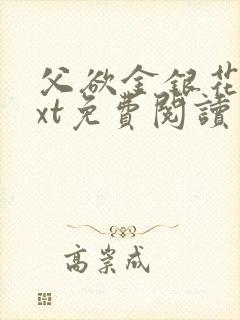 父欲金銀花
xt免費閱讀
高崇成